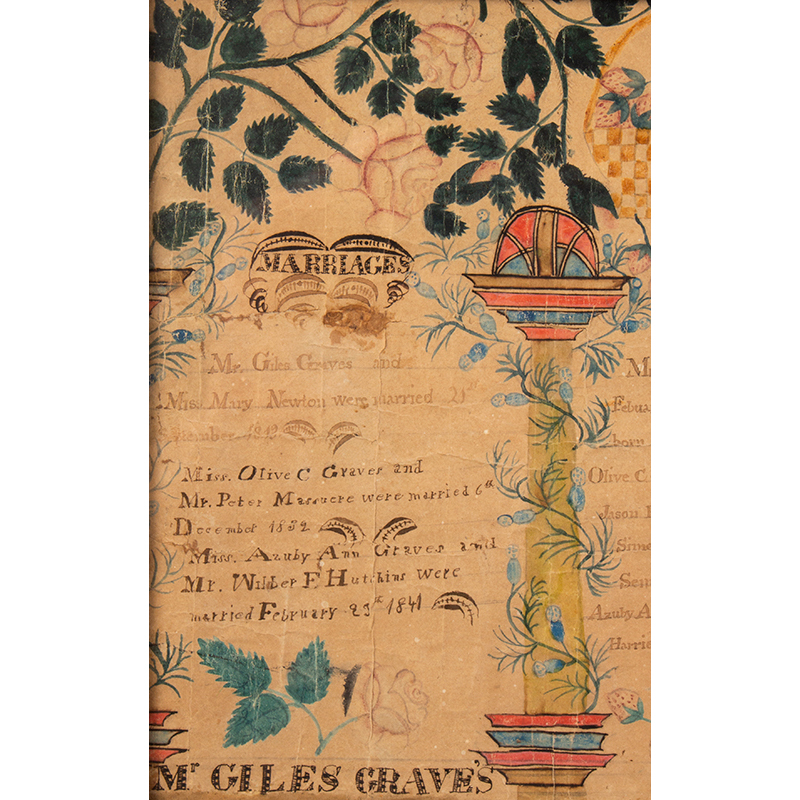 MARRIAGES
Mr. Giles Graves and
Miss. Mary Newton were married 21st
September 1812
Miss. Olive C Graves and
Mr. Peter Massuere were married 6th
December 1832
Miss. Azuby Ann Graves and
Mr. Wilber F Hutchins were
married February 23th 1841
M
Febua
born
Olive C.
Jason
Sime
Azuby A
Harrie
Mr GILES GRAVE'S